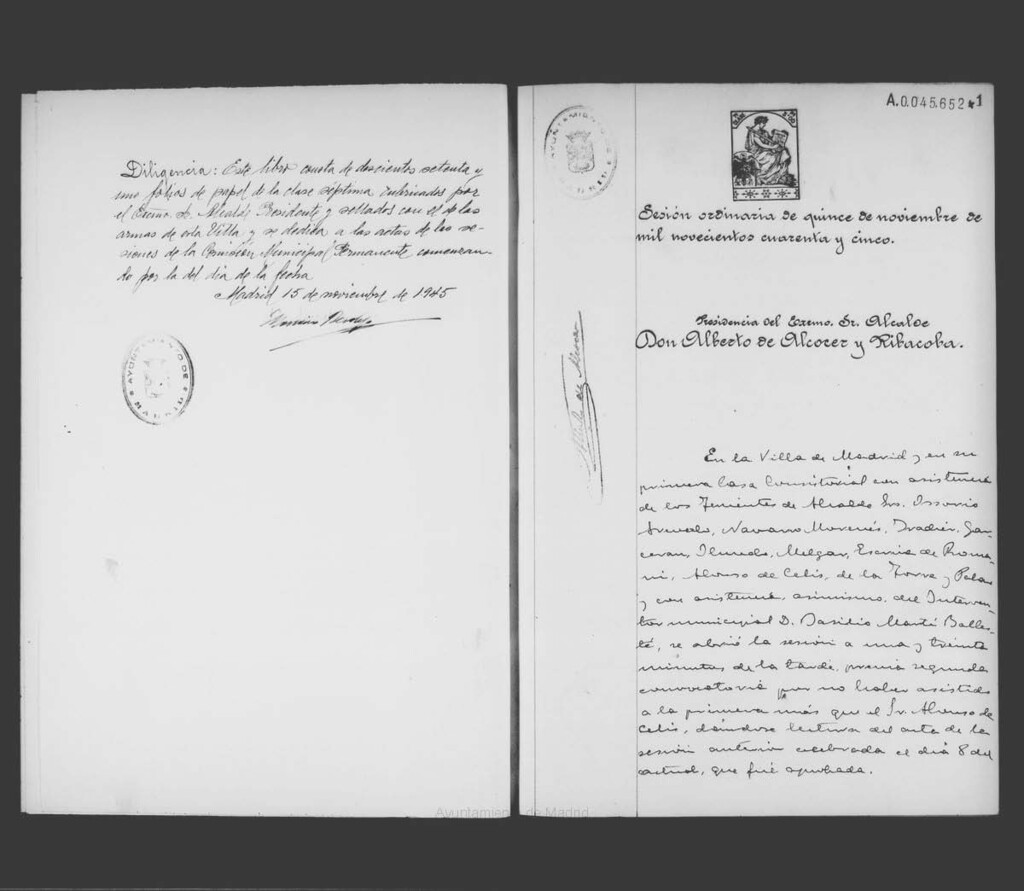 Diligencia: Este libro consta de doscientos setenta y
uno folios de papel de la clase séptima rubricados por
el Excmo Sr. Alcalde Presidente y sellados con el de las
armas de esta Villa y se dedica a las actas de las se-
siones de la Comisión Municipal Permanente comenzan-
do por la del día de la fecha
Madrid 15 de noviembre de 1945
AYUNTAMIENTO DE
MADRID
AYUNTAMIENTO DE
MADRID
A.0.045.652 *1
Sesión ordinaria de quince de noviembre de
mil novecientos cuarenta y cinco.
Presidencia del Excmo. Sr. Alcalde
Don Alberto de Alcocer y Ribacoba.
En la Villa de Madrid y en su
primera Casa Consistorial con asistencia
de los Tenientes de Alcalde Srs. Ossorio
Arevalo, Navarro Morenés, Iradier, Gar-
ceran, Olmedo, Melgar, Escrivá de Roma-
ni, Alonso de Celis, de la Torre y Palau
y con asistencia, asimismo, del Interven-
tor municipal D. Basilio Martí Balles-
té, se abrió la sesión a una y treinta
minutos de la tarde, previa segunda
convocatoria por no haber asistido
a la primera más que el Sr. Alonso de
Celis, dándose lectura del acta de la
sesión anterior celebrada el día 8 del
actual, que fué aprobada.
Ayuntamiento de Madrid